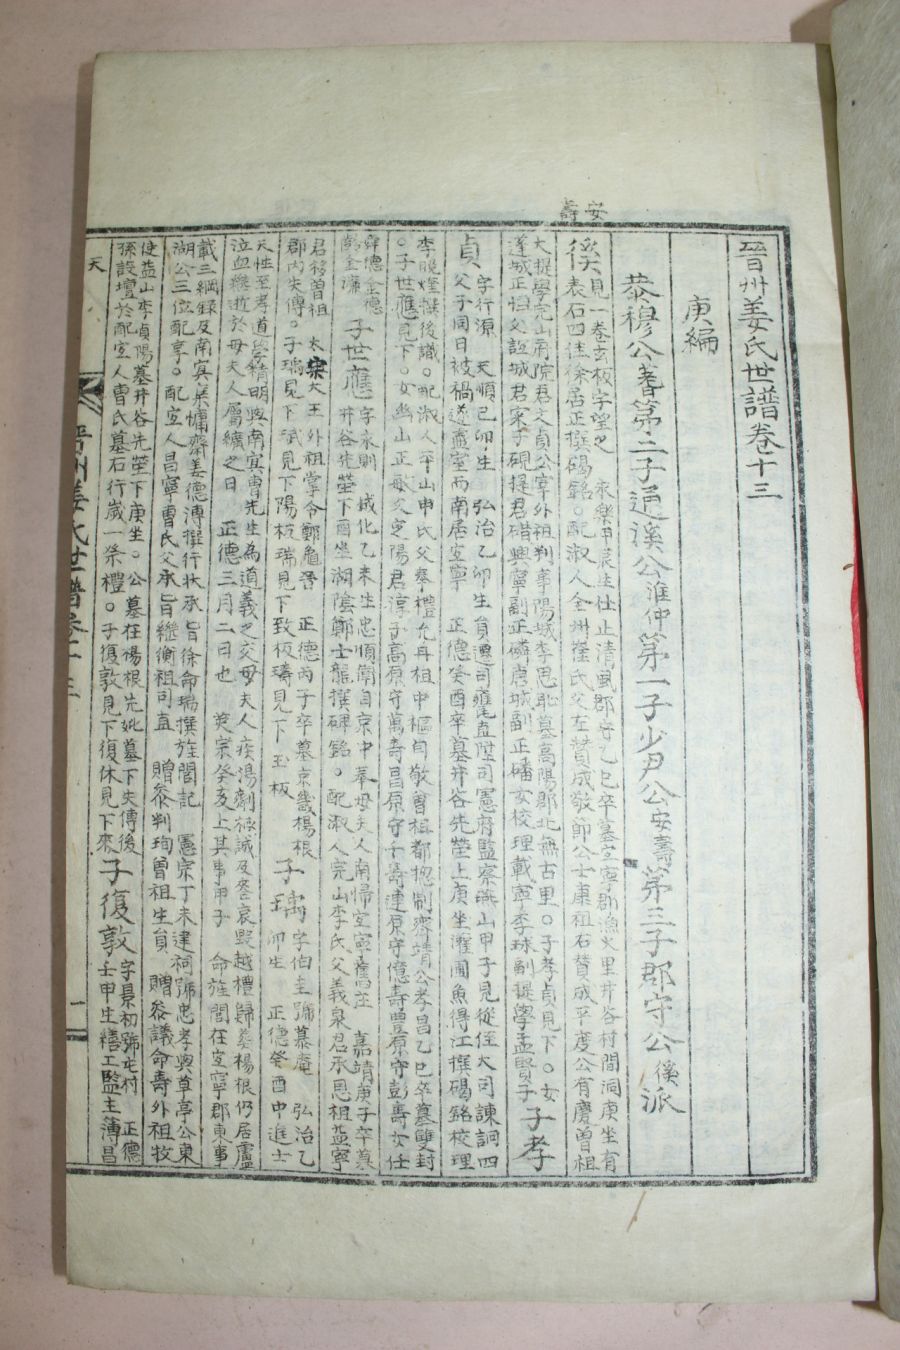 安
壽
晉州姜氏世譜卷十三
庚編
恭穆公蓍第二子通溪公淮仲第一子少尹公安壽第三子郡守公徯派
徯見一卷玄板字望之 永樂甲辰生仕止清風郡守乙巳卒墓宜寧郡漁火里井谷村間洞庚坐有
表石四佳徐居正撰碣銘。配淑人全州崔氏父左贊成敬節公士康祖右贊成平度公有慶曾祖
大提學完山府院君文貞公宰外祖判事陽城李思恥墓高陽郡北無古里。子孝貞見下。女
蓬城正怕父誼城君寀子硯提君礎興寧副正磷唐城副正磻女校理載寧李球副提學孟賢子 子孝
貞 字行源 天順己卯生 弘治乙卯生員遷司䆃直陞司憲府監察燕山甲子見從侄大司諫詗四
父子同日被禍遂盡室西南居宜寧 正德癸酉卒墓井谷先塋上庚坐灌圃魚得江撰碣銘校理
李晚煃撰後識。配淑人平山申氏父奉禮允冉祖中樞自敬曾祖都摠制齊靖公孝昌乙巳卒墓雙封
。子世應見下。女幽山正 父定陽君淳子高原守萬壽昌原守千壽連原守億壽豊原守彭壽女任
舜德金德
彭金濂 子世應 字永則 成化乙未生忠順衛自京中奉母夫人南歸宜寧舊莊 嘉靖庚子卒墓
井谷先塋下酉坐湖陰鄭士龍撰碑銘。配淑人完山李氏父義泉君承恩祖益寧
君移曾祖 太宗大王 外祖掌令鄭龜晉 正德丙子卒墓京畿楊根
郡內失傳。子瑀見下珷見下陽板瑞見下致板璹見下玉板 子瑀 字伯圭號慕庵 弘治乙
卯生 正德癸酉中進士
天性至孝道學精明與南冥曺先生爲道義之交母夫人疾湯劑極誠及丧哀毀越禮歸葬楊根仍居廬
泣血 逝於母夫人屬纊之日 正德三月二日也 英宗癸亥上其事甲子 命旌閭在宜寧郡東事
載三綱錄及南冥集慵齋姜德溥撰行狀承旨徐命瑞撰旌閭記 憲宗丁未建祠號忠孝與草亭公東
湖公三位配享。配宜人昌寧曺氏父承旨繼衡祖司直 贈叅判珣曾祖生員 贈叅議命壽外祖牧
使益山李貞陽墓井谷先塋下庚坐。公墓在楊根先妣墓下失傳後
孫設壇於配宜人曺氏墓右行歲一祭禮。子復敦見下復休見下來 子復敦 字景初號屯村 正德
壬申生繕工監主簿昌
天
晋州姜氏世譜卷十三
一